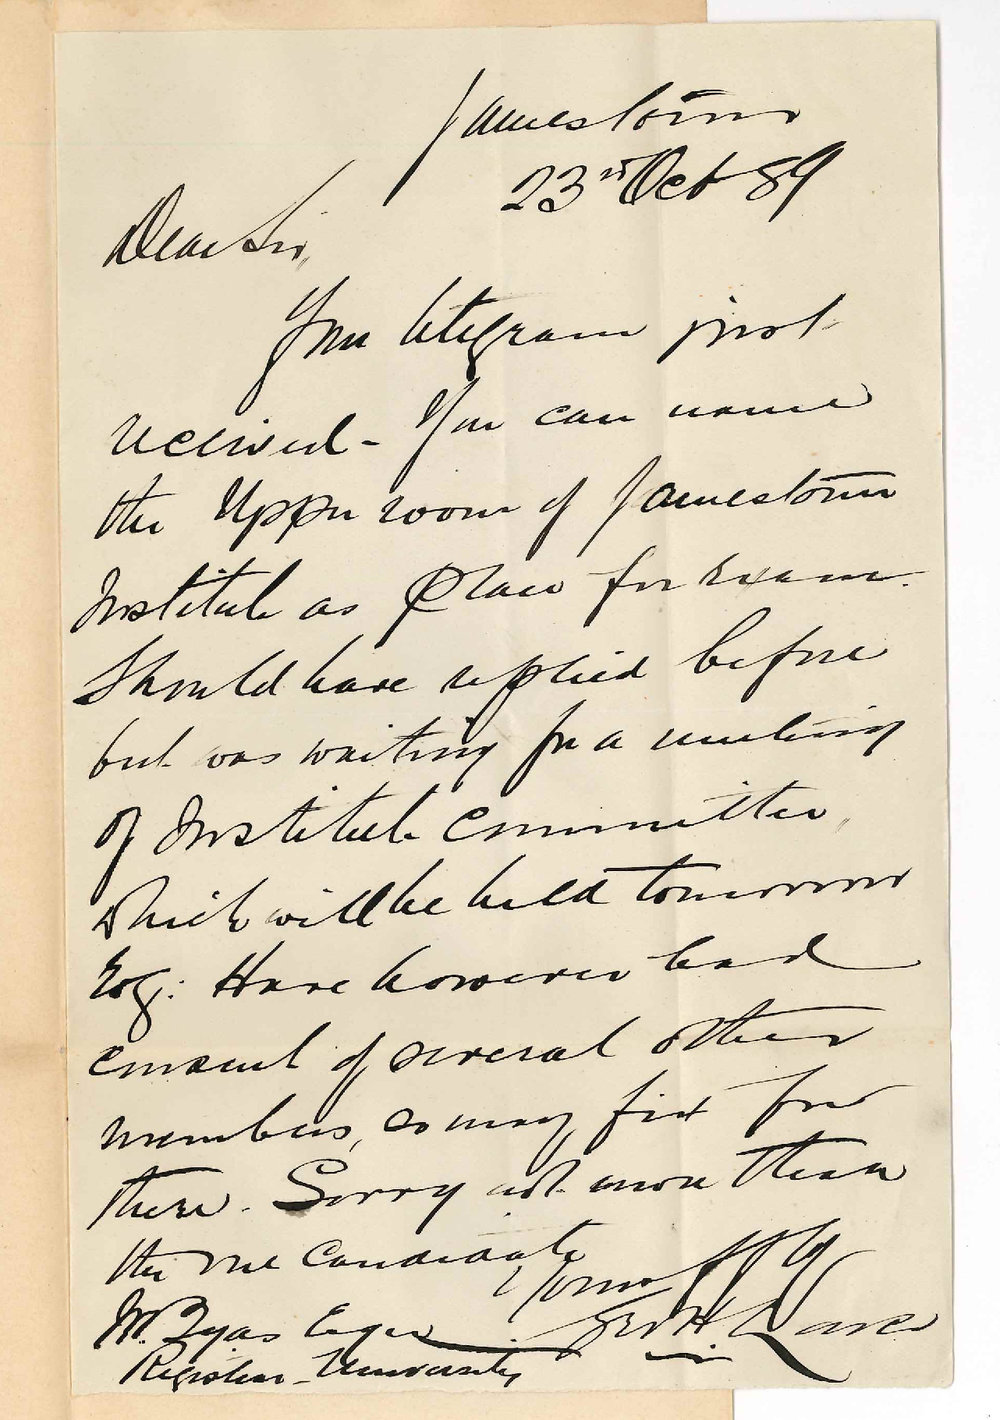 Jamestown
23rd Oct 89
Dear Sir,
Your telegram just
received - You can name
the Upper room of Jamestown
Institute as place for Exam.
Should have replied before
but was waiting for a meeting
of Institute Committee,
which will be held tomorrow
Evg: Have however had
consent of several other
members, so may fix for
there. Sorry not more than
the one candidate
Yours ffly
Geo H Lake
W. Tyas Esquire
Registrar University